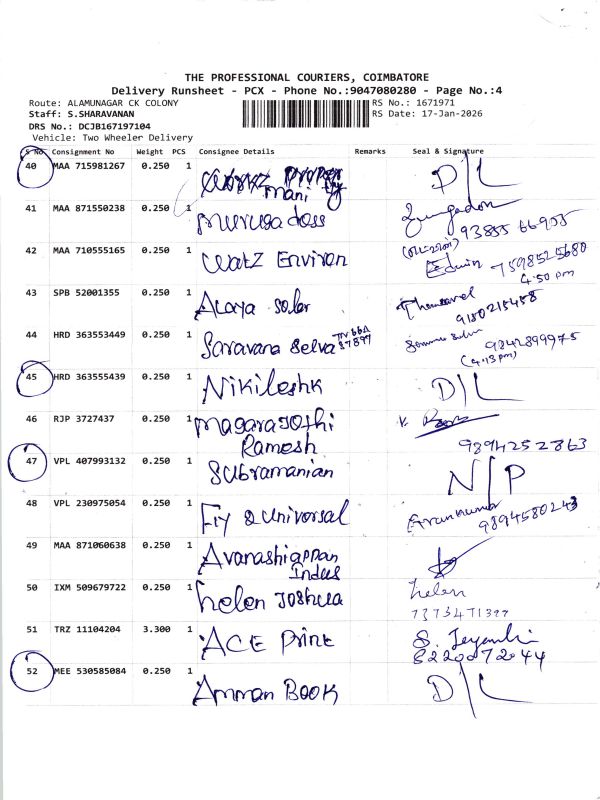 THE PROFESSIONAL COURIERS, COIMBATORE
Delivery Runsheet - PCX - Phone No.:9047080280 - Page No.:4
Route: ALAMUNAGAR CK COLONY RS No.: 1671971
Staff: S.SHARAVANAN RS Date: 17-Jan-2026
DRS No.: DCJB167197104
Vehicle: Two Wheeler Delivery
S No Consignment No Weight PCS Consignee Details Remarks Seal & Signature
40 MAA 715981267 0.250 1 D/L
mani
41 MAA 871550238 0.250 1 murugadoss
93855 66955
42 MAA 710555165 0.250 1 Watz Environ Edwin 7598525680
4:50 pm
43 SPB 52001355 0.250 1 Alaya solar
9180215458
44 HRD 363553449 0.250 1 Saravana Selva
9842899975
(4.13pm)
45 HRD 363555439 0.250 1 Nikileshk D/L
46 RJP 3727437 0.250 1 magarajothi
Ramesh 9894252863
47 VPL 407993132 0.250 1 Subramanian N/P
48 VPL 230975054 0.250 1 Fiy & universal Arunkumar
9894580243
49 MAA 871060638 0.250 1 Avanashiappan
Indus
50 IXM 509679722 0.250 1 helen Joshua helen
7373471399
51 TRZ 11104204 3.300 1 ACE Print
8220072044
52 MEE 530585084 0.250 1 Amman Book D/L